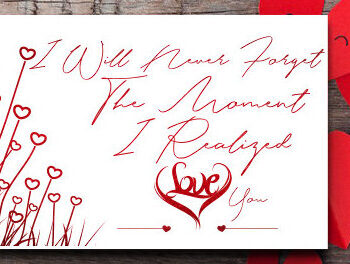 I Will Never Forget
The Moment
I Realized
Love
You